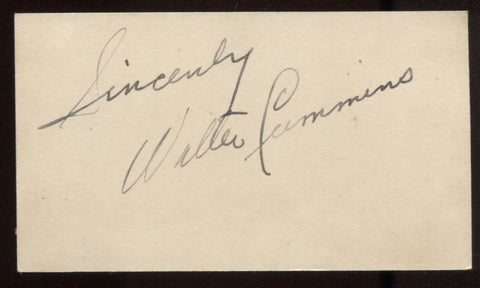 Sincerely
Walter Cummins